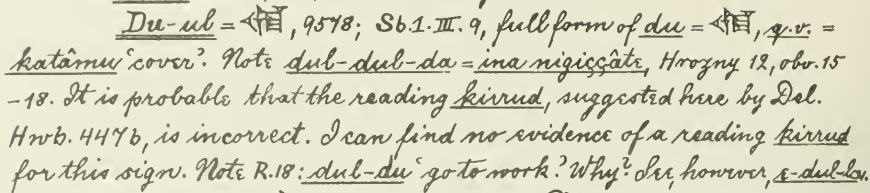 Du-ul = 𒌋𒌆, 9578; Sb. 1. III. 9, full form of du = 𒌋𒌆, q.v. =
katâmu ‘cover’. Note dul-dul-da = ina nigiççâte, Hrozny 12, obv. 15
-18. It is probable that the reading kirrud, suggested here by Del.
Hwb. 447b, is incorrect. I can find no evidence of a reading kirrud
for this sign. Note R. 18: dul-du ‘go to work’? Why? See, however, e-dul-la.